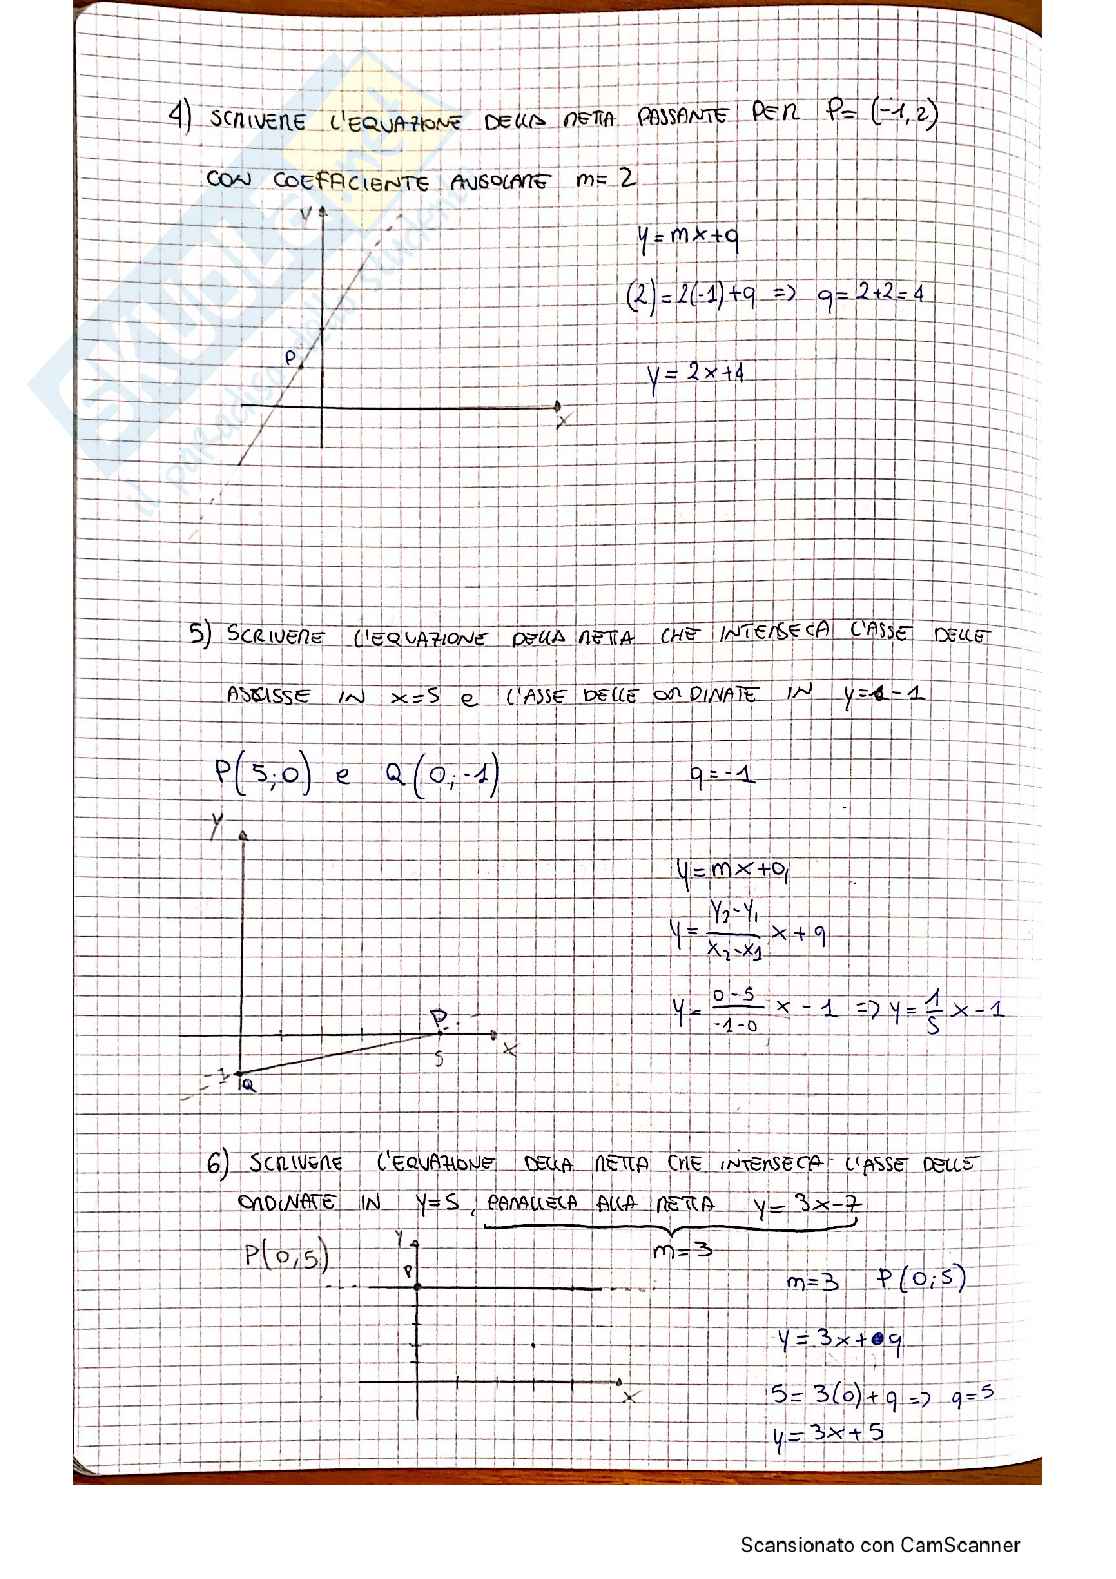 4) SCRIVERE L'EQUAZIONE DELLA RETTA PASSANTE PER P= (-1,2)
CON COEFFICIENTE ANGOLARE m= 2
y
y=mx+q
(2)=2(-1)+q => q=2+2=4
P
y= 2x+4
x
5) SCRIVERE L'EQUAZIONE DELLA RETTA CHE INTERSECA L'ASSE DELLE
ASCISSE IN x=5 e L'ASSE DELLE ORDINATE IN y= -1
P(5;0) e Q(0;-1)
q=-1
y
y=mx+q
y= y₂-y₁/x₂-x₁ x+q
y= 0-5/-1-0 x - 1 => y= 1/5 x-1
P
x
5
-1
Q
6) SCRIVERE L'EQUAZIONE DELLA RETTA CHE INTERSECA L'ASSE DELLE
ORDINATE IN y=5, PARALLELA ALLA RETTA y= 3x-7
m=3
P(0,5)
y
P
m=3 P(0;5)
y= 3x+q
x
5= 3(0)+q => q=5
y= 3x+5
Skuola.net
il paradiso dello studente
Scansionato con CamScanner